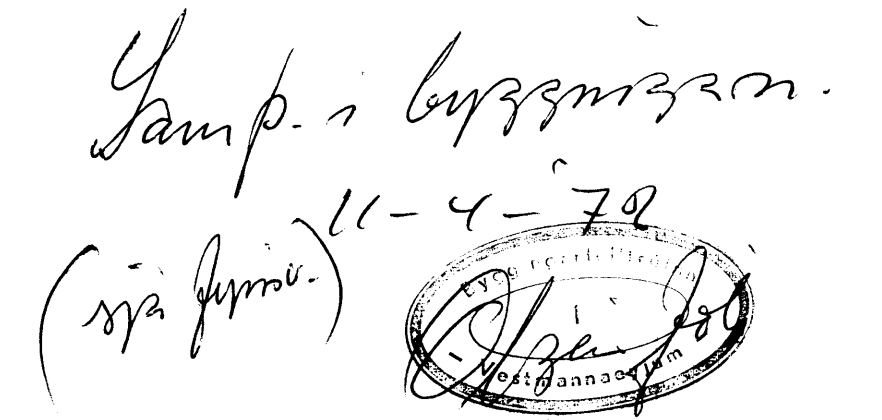 Samþ. í byggingan.
11-4-'78
(sjá fyrirv.)
byggingafulltrúinn
í
Vestmannaeyjum